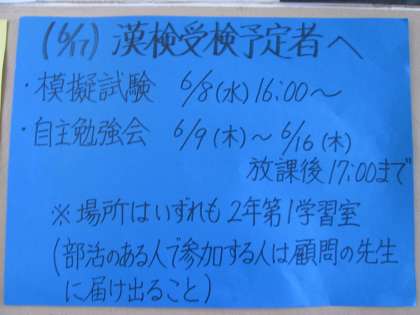 (6/17) 漢検受検予定者へ
・模擬試験 6/8(水) 16:00～
・自主勉強会 6/9(木)～6/16(木)
放課後 17:00まで
※場所はいずれも2年第1学習室
(部活のある人で参加する人は顧問の先生
に届け出ること)